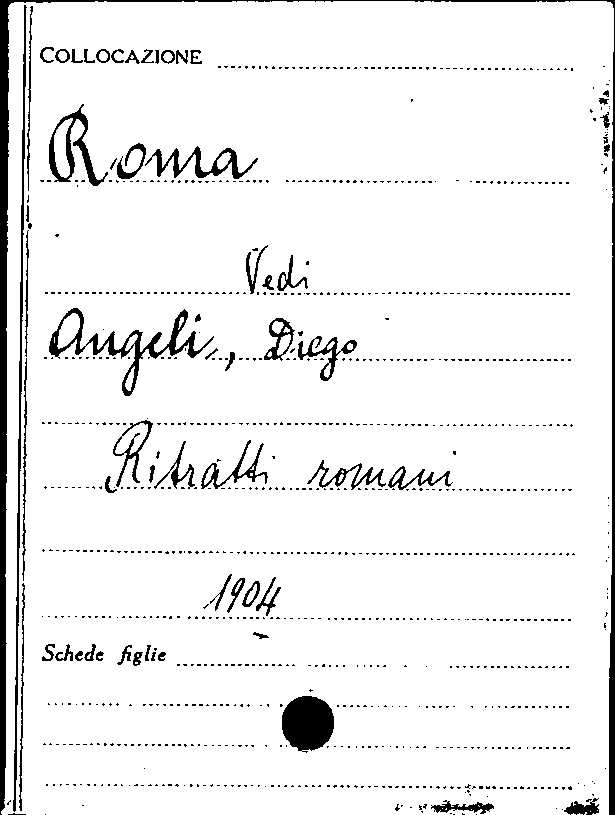 COLLOCAZIONE
Roma
Vedi
Angeli, Diego
Ritratti romani
1904
Schede figlie